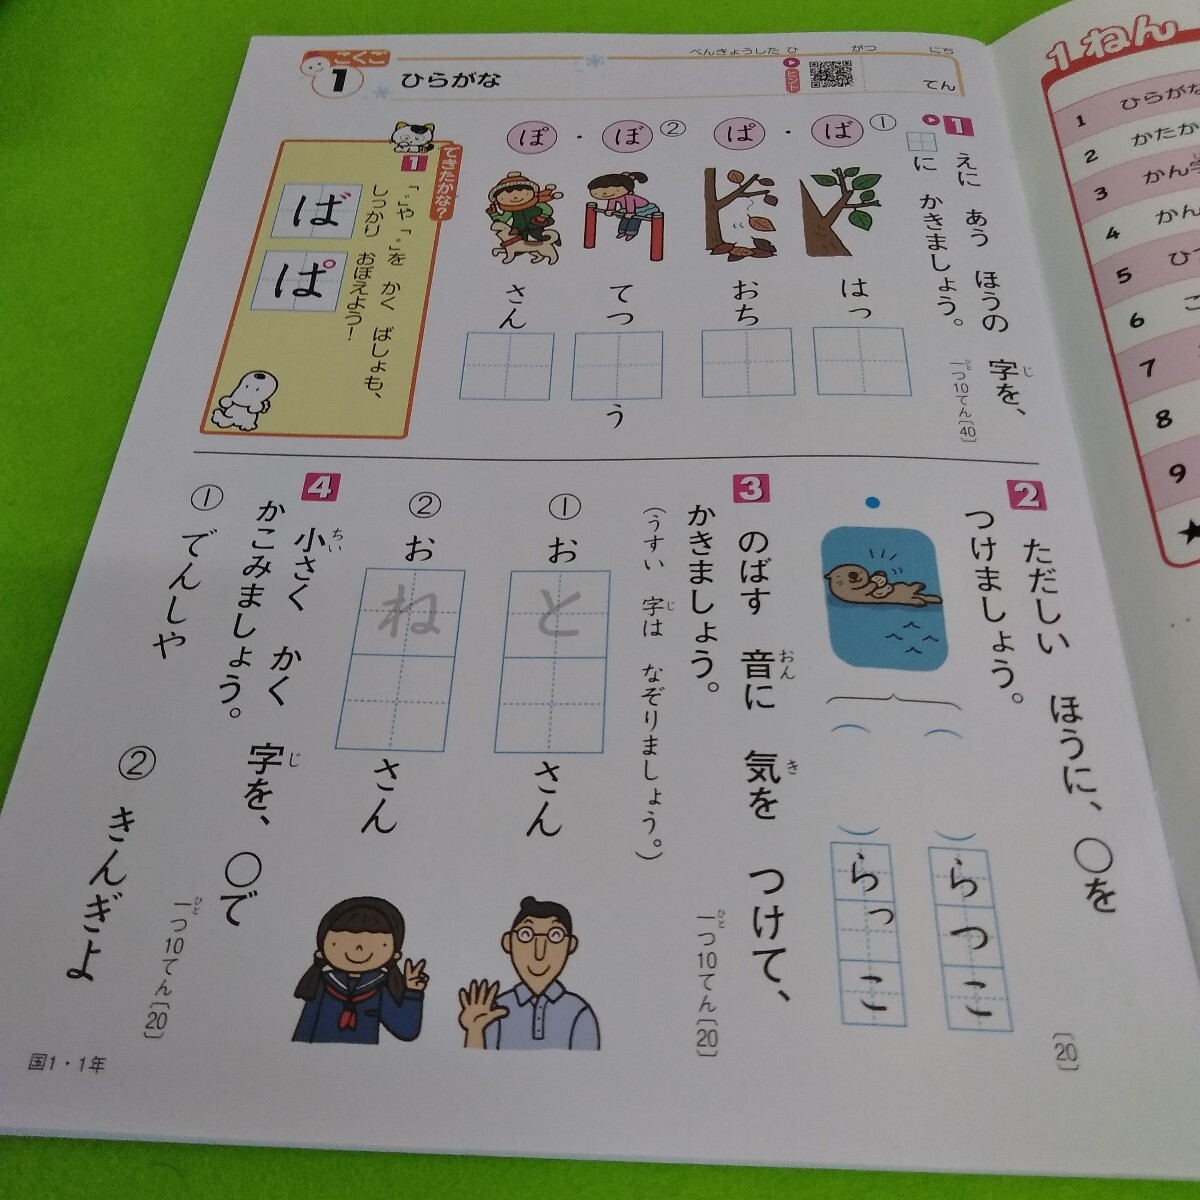 こくご
1
ひらがな
べんきょうした ひ　がつ　にち
ヒント
てん
1
えに　あう　ほうの　字を、
じ
□に　かきましょう。
一つ10てん〔40〕
ひと
①
ば・ぱ
はっ
おち
②
ぼ・ぽ
てつ
う
さん
できたかな？
1
「゛」や「゜」を　かく　ばしょも、
しっかり　おぼえよう！
ば
ぱ
2
ただしい　ほうに、○を
つけましょう。
〔20〕
らつこ
らっこ
3
のばす　音に　気を　つけて、
おん
き
かきましょう。
一つ10てん〔20〕
ひと
（うすい　字は　なぞりましょう。）
じ
①
お
と
さん
②
お
ね
さん
4
小さく　かく　字を、○で
ちい
じ
かこみましょう。
一つ10てん〔20〕
ひと
①
でんしや
②
きんぎよ
国1・1年
1ねん
1
ひらがな
2
かたか
3
かん字
4
かん
5
ひ
6
こ
7
8
9
★